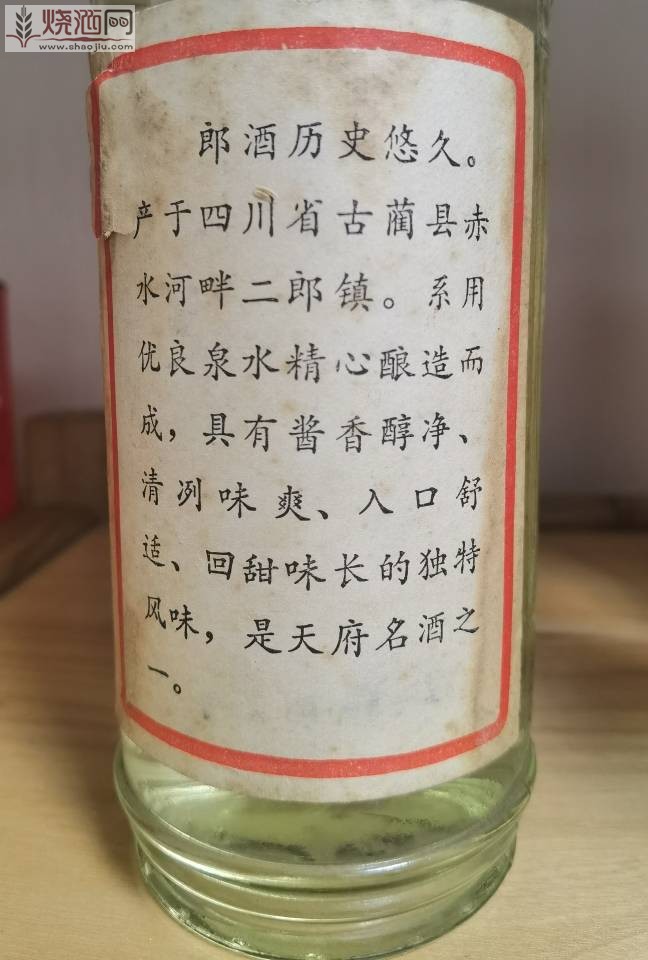 烧酒网
www.shaojiu.com
郎酒历史悠久。
产于四川省古蔺县赤
水河畔二郎镇。系用
优良泉水精心酿造而
成，具有酱香醇净、
清冽味爽、入口舒
适、回甜味长的独特
风味，是天府名酒之
一。